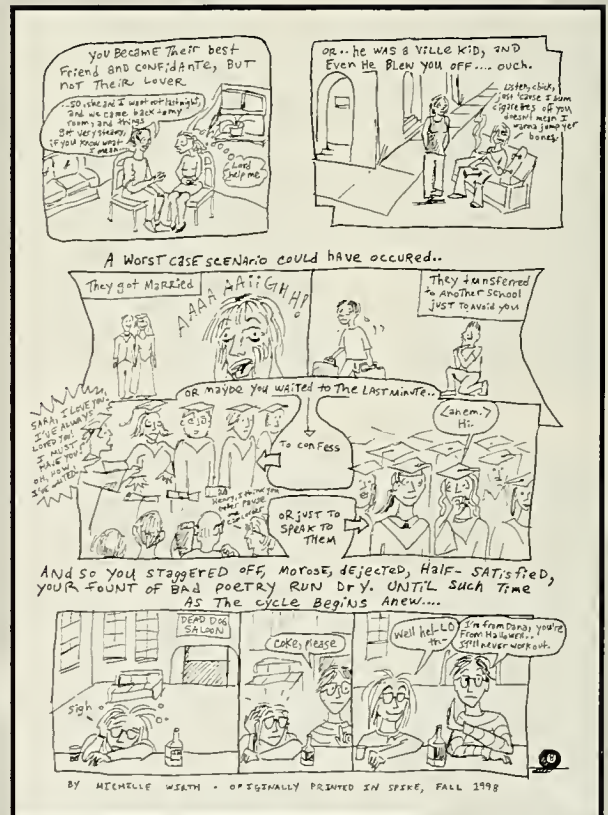 YOU BECAME THEIR best
Friend and CONFIDANTE, BUT
NOT THEIR LOVER
...SO, she and I went out last night,
and we came back to my
room, and things
got very steamy,
if you know what
I mean...
Lord
help me
OR.. he WAS a VILLE KID, AND
EVEN HE BLEW YOU OFF.... OUCH.
Listen, chick,
just 'cause I bum
cigarettes off you
doesn't mean I
wanna jump yer
bones.
A WORST CASE SCENARIO COULD HAVE OCCURED..
They got MARRIED
AAAA AAiiGHH!
They transferred
to ANOTHER SCHOOL
JUST TO AVOID YOU
OR maybe you WAITED to The LAST MINUTE..
SARA, I LOVE YOU.
I'VE ALWAYS
LOVED YOU!
I MUST
HAVE YOU!
OH, HOW
I'VE WAITED!
To CONFESS
Henry, I think you
Cahem.7
Hi..
OR JUST TO
SPEAK TO
THEM
AND SO YOU STAGGERED OFF, MOROSE, dEjECTED, HALF-SATisfiED,
YOUR FOUNT OF BAD POETRY RUN DRY. UNTIL SUCH TIME
AS THE CYCLE BEGINS ANEW....
DEAD DOG
SALOON
sigh
COKE, please
Well hel-LO
th-
I'm from Dana, you're
From Hallowell..
It'll never work out.
BY MICHELLE WIRTH • ORIGINALLY PRINTED IN SPIKE, FALL 1998